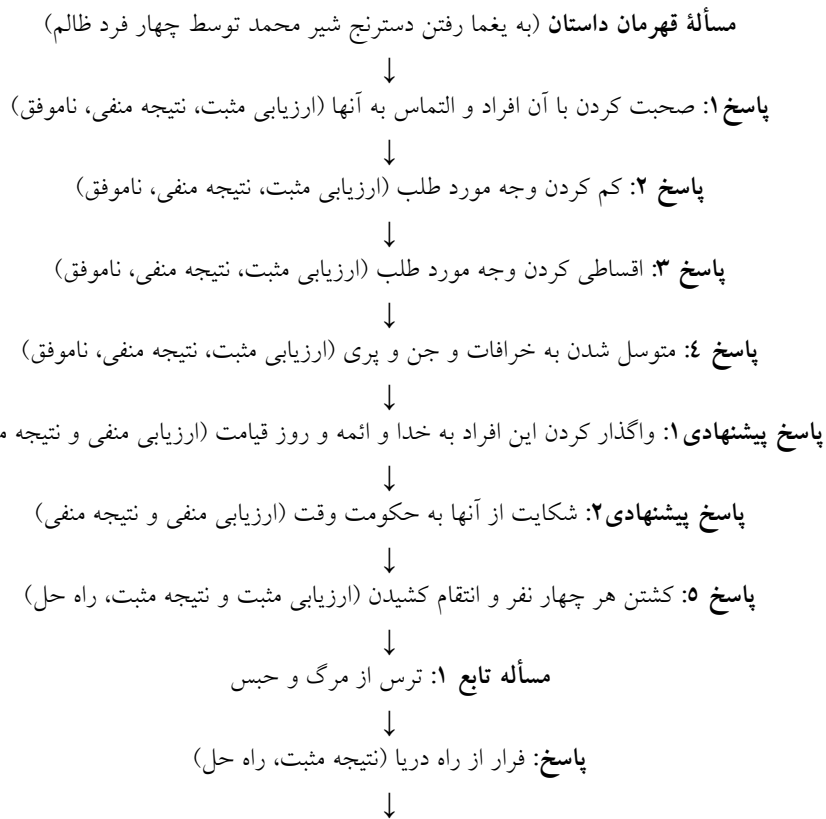 مسألۀ قهرمان داستان (به یغما رفتن دسترنج شیر محمد توسط چهار فرد ظالم)
↓
پاسخ۱: صحبت کردن با آن افراد و التماس به آنها (ارزیابی مثبت، نتیجه منفی، ناموفق)
↓
پاسخ ۲: کم کردن وجه مورد طلب (ارزیابی مثبت، نتیجه منفی، ناموفق)
↓
پاسخ ۳: اقساطی کردن وجه مورد طلب (ارزیابی مثبت، نتیجه منفی، ناموفق)
↓
پاسخ ٤: متوسل شدن به خرافات و جن و پری (ارزیابی مثبت، نتیجه منفی، ناموفق)
↓
پاسخ پیشنهادی۱: واگذار کردن این افراد به خدا و ائمه و روز قیامت (ارزیابی منفی و نتیجه
↓
پاسخ پیشنهادی۲: شکایت از آنها به حکومت وقت (ارزیابی منفی و نتیجه منفی)
↓
پاسخ ٥: کشتن هر چهار نفر و انتقام کشیدن (ارزیابی مثبت و نتیجه مثبت، راه حل)
↓
مسأله تابع ۱: ترس از مرگ و حبس
↓
پاسخ: فرار از راه دریا (نتیجه مثبت، راه حل)
↓